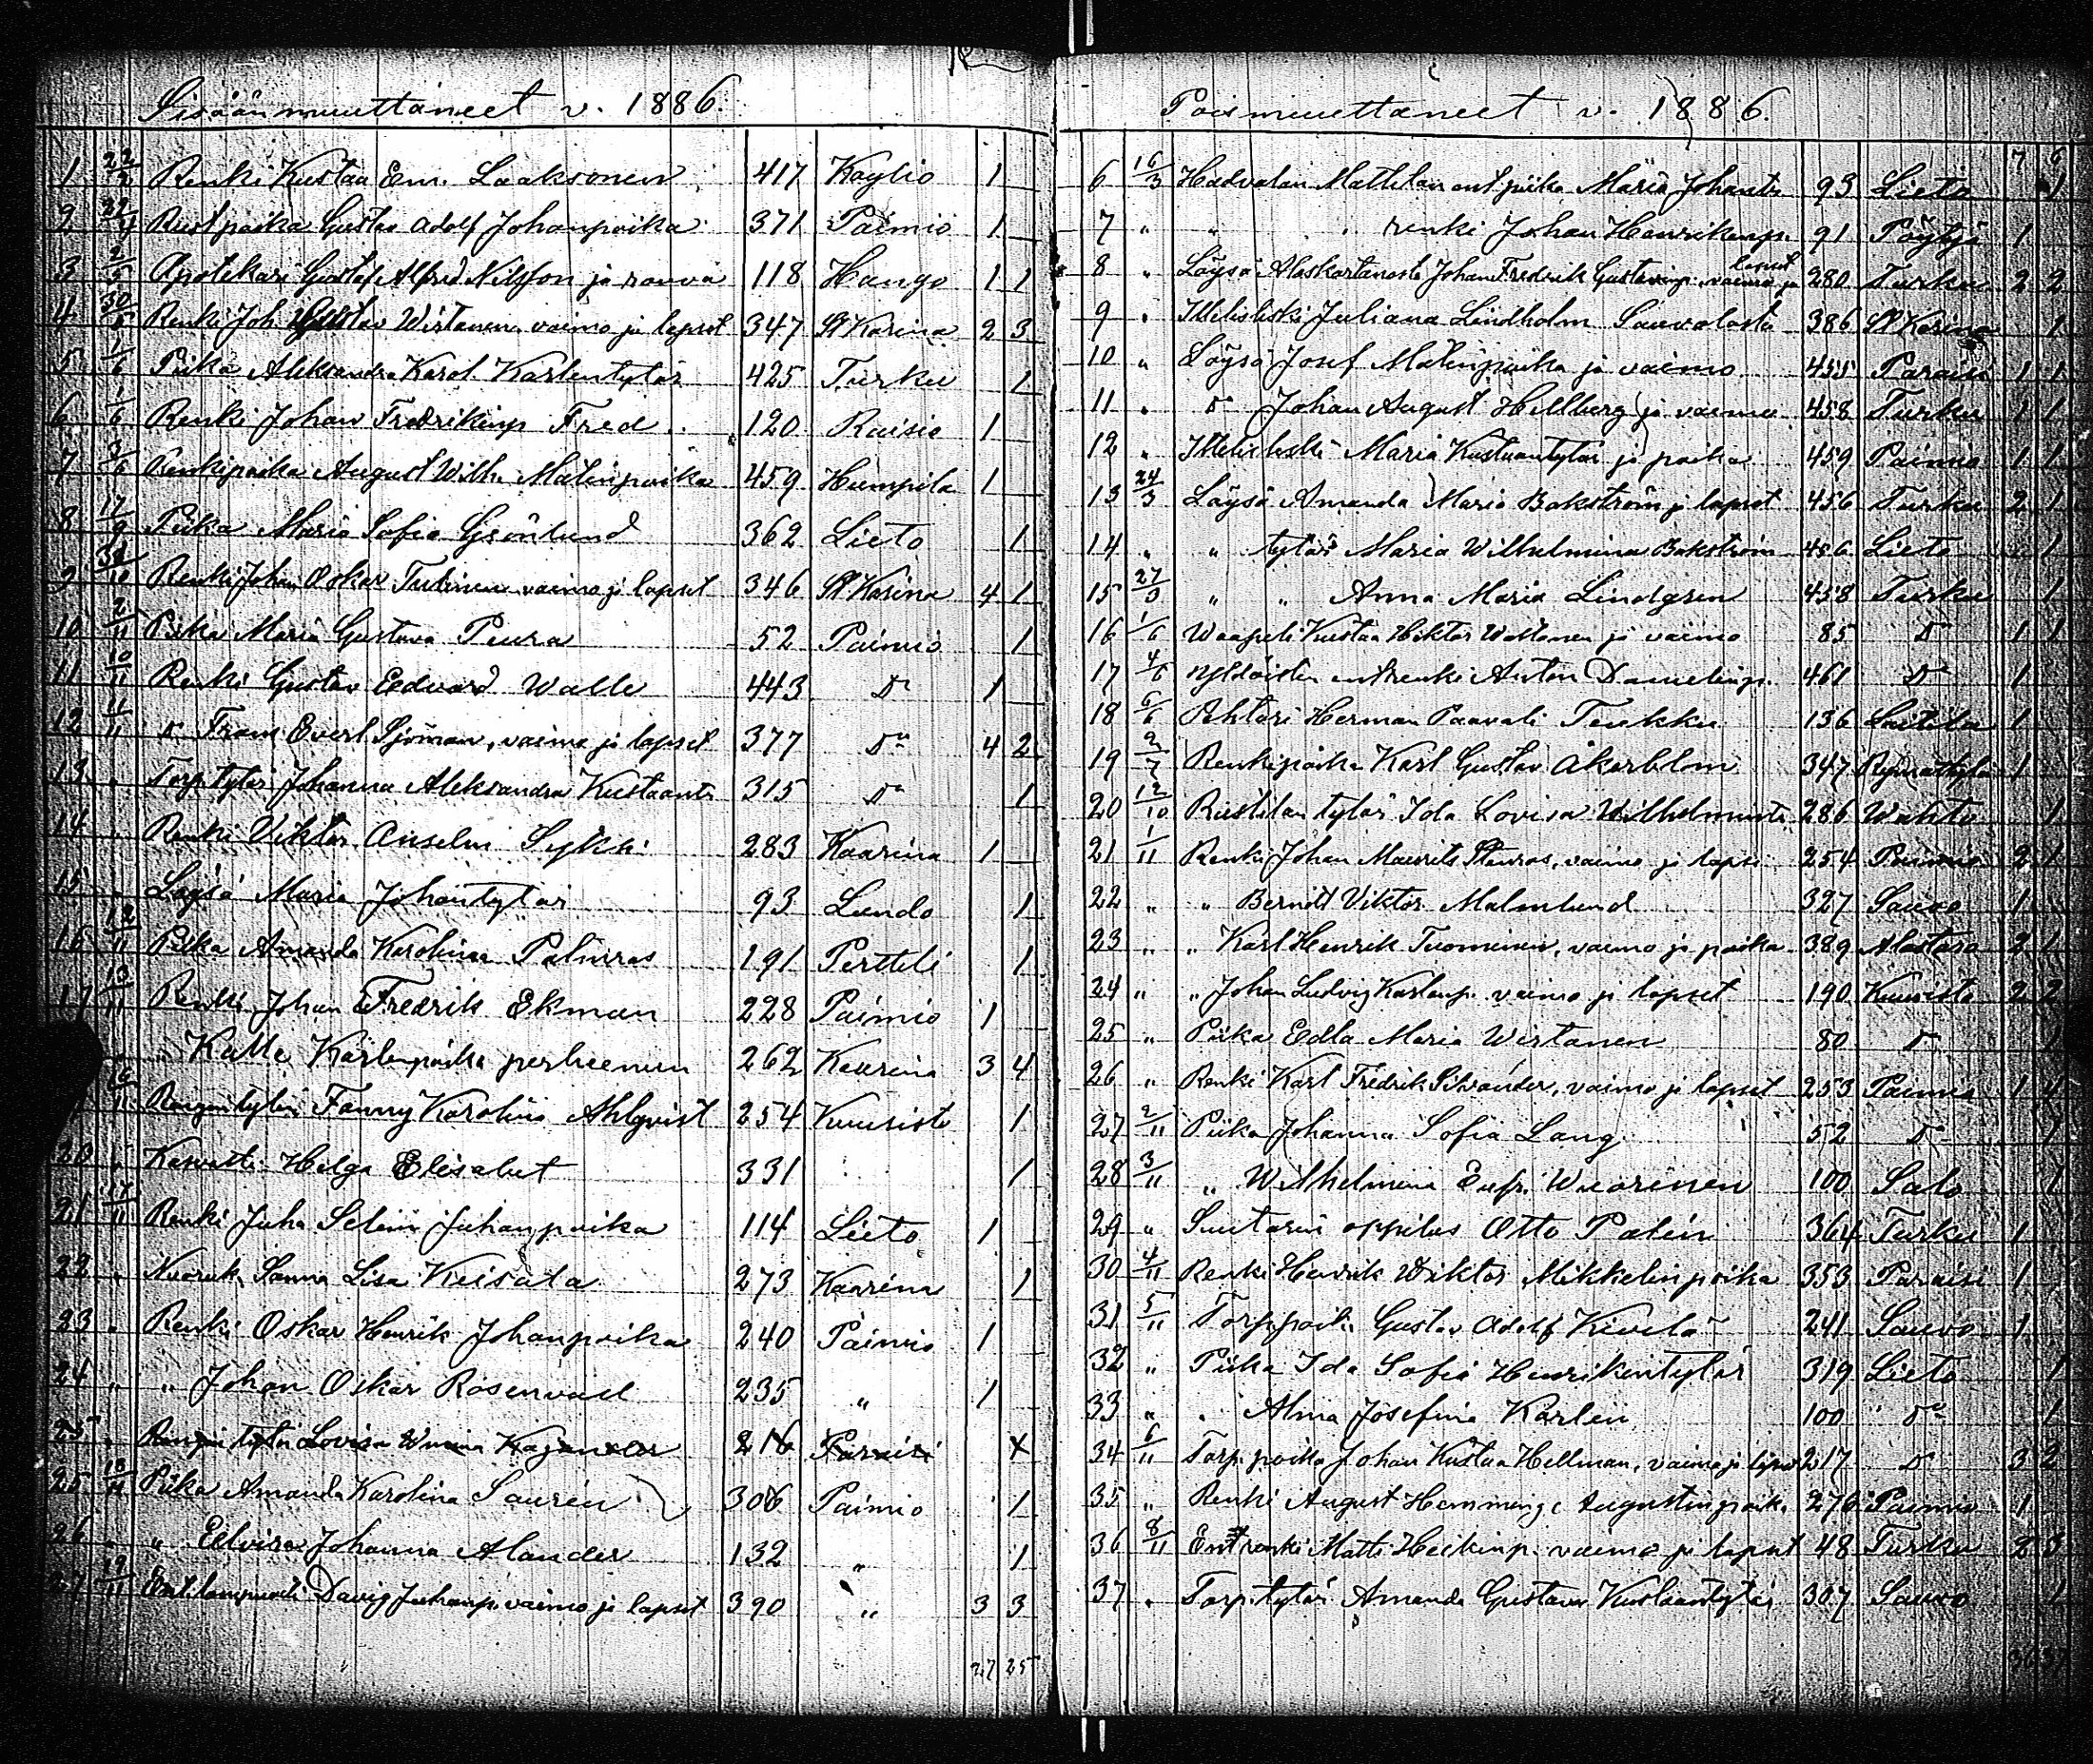 Sisäänmuuttaneet v. 1886.
1 22/2 Renki Kustaa Em. Laaksonen 417 Köyliö 1
2 22/4 Rustpoika Gustav Adolf Johanpoika 371 Paimio 1
3 2/5 Apotekari Gustaf Alfred Nilsson ja rouva 118 Hango 1 1
4 30/5 Renki Joh. Gustav Wirtanen vaimo ja lapset 347 St Karina 2 3
5 1/6 Piika Aleksandra Karol. Karlentytär 425 Turku 1
6 1/6 Renki Johan Fredrikinp Fred 120 Raisio 1
7 3/6 Renkipoika August Wilh. Matinpoika 459 Humpila 1
8 17/9 Piika Maria Sofia Grönlund 362 Lieto 1
9 30/10 Renki Johan Oskar Tulinen vaimo ja lapset 346 St Karina 4 1
10 2/11 Piika Maria Gustava Peura 52 Paimio 1
11 10/11 Renki Gustav Edvard Walle 443 Do 1
12 11/11 Do Frans Evert Sjöman, vaimo ja lapset 377 Do 4 2
13 " Torp. tytär Johanna Aleksandra Kustaant. 315 Do 1
14 " Renki Viktor Anselm Sykki 283 Kaarina 1
15 " Löysä Maria Johantytär 93 Lundo 1
16 12/11 Piika Amanda Karolina Palmros 191 Pertteli 1
17 13/11 Renki Johan Fredrik Ekman 228 Paimio 1
" Kalle Karlenpoika perheenen 262 Kaarina 3 4
Rengin tytär Fanny Karolina Ahlqvist 254 Kuusisto 1
20 " Kasvatti Helga Elisabet 331 1
21 17/11 Renki Juha Selim Juhanpoika 114 Lieto 1
22 " Nuoruk. Sanna Lisa Keisala 273 Kaarina 1
23 " Renki Oskar Henrik Johanpoika 240 Paimio 1
24 " " Johan Oskar Rosenvall 235 " 1
25 " Rengin tytär Lovisa Kajander 216 Paraisi
25 18/11 Piika Amanda Karolina Saurén 306 Paimio 1
26 " " Edvira Johanna Alander 132 " 1
27 19/11 Ent. lampuoti David Juhanp. vaimo ja lapset 390 " 3 3
27 25
Poismuuttaneet v. 1886.
6 16/3 Hadvalan Mattilan ent piika Maria Johant. 93 Lieto 1
7 " " " renki Johan Henrikinp. 91 Pöytyä 1
8 " Löysä Alaskartanosta Johan Fredrik Gustavinp. vaimo ja lapset 280 Turku 2 2
9 " Itselliski Juliana Lindholm Sauvalasta 386 St Karina 1
10 " Löysä Josef Matinpoika ja vaimo 455 Paraisi 1 1
11 " Do Johan August Hellberg ja vaimo 458 Turku 1 1
12 " Itselliski Maria Kustaantytär ja poika 459 Paimio 1 1
13 24/3 Löysä Amanda Maria Bakström ja lapset 456 Turku 2 1
14 " " tytär Maria Wilhelmina Bakström 456 Lieto 1
15 27/3 " " Anna Maria Lindgren 458 Turku 1
16 1/6 Waapeli Kustaa Hektor Waltonen ja vaimo 85 Do 1 1
17 4/6 entrenki Anton Danielinp. 461 Do 1
18 6/6 Rehtori Herman Paavali Teukku 136 Laitila 1
19 2/7 Renkipoika Karl Gustav Åkerblom 347 Rymättylä 1
20 12/10 Rustitilan tytär Ida Lovisa Wilhelmint. 286 Wahto 1
21 1/11 Renki Johan Maurits Stenros, vaimo ja lapsi 254 Paimio 2 1
22 " " Berndt Viktor Malmlund 327 Sauvo 1
23 " " Karl Henrik Tuominen, vaimo ja poika 389 Alastaro 2 1
24 " " Johan Ludvig Karlenp. vaimo ja lapset 190 Kuusisto 2 2
25 " Piika Edla Maria Wirtanen 80 Do 1
26 " Renki Karl Fredrik Silvander, vaimo ja lapset 253 Paimio 1 4
27 2/11 Piika Johanna Sofia Lang 52 Do 1
28 3/11 " Wilhelmina Eufr. Wuorinen 100 Salo 1
29 " Suutarin oppilas Otto Palén 364 Turku 1
30 4/11 Renki Henrik Wiktor Mikkelinpoika 353 Paraisi 1
31 5/11 Torppoik. Gustav Adolf Kivelä 241 Sauvo 1
32 " Piika Ida Sofia Henrikintytär 319 Lieto 1
33 " " Alma Josefina Karlén 100 Do 1
34 6/11 Torp. poika Johan Kustaa Hellman, vaimo ja lapset 217 Do 3 2
35 " Renki August Hemminge Augustinpoik. 276 Paimio 1
36 8/11 Ent renki Matti Heikinp. vaimo ja lapset 48 Turku 2 3
37 " Torp. tytär Amanda Gustava Kustaantytär 307 Sauvo 1